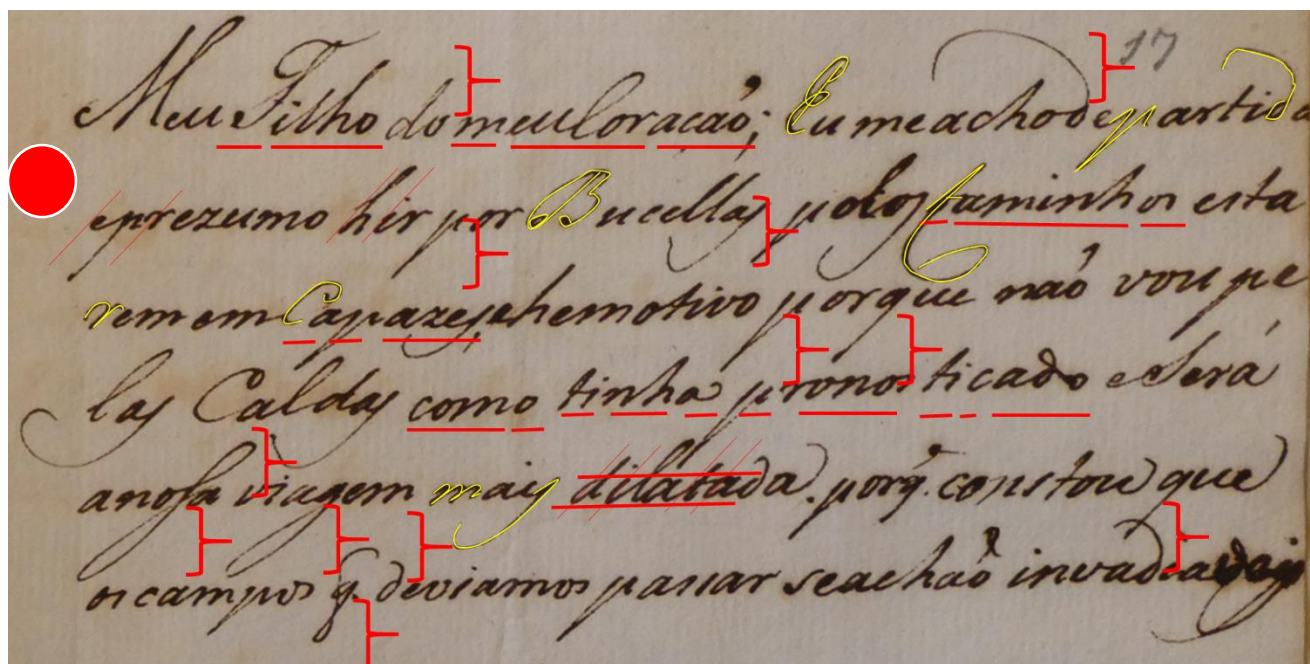 17
Meu Filho do meu Coração; Eu me acho de partida
e prezumo hir por Bucellas polos Caminhos esta
rem em Capazes, e he motivo porque não vou pe
las Caldas como tinha pronosticado e Será
a nossa viagem mais dilatada. porq. constou que
os campos q. deviamos passar se achaõ invadiaveis